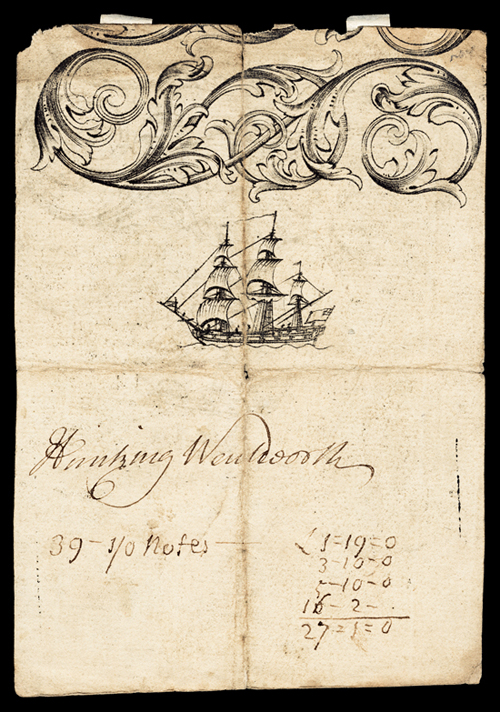 Hunking Wentworth
39 - 1/0 Notes — £1=19=0
3-10-0
5-10-0
16-2-.
27=1=0